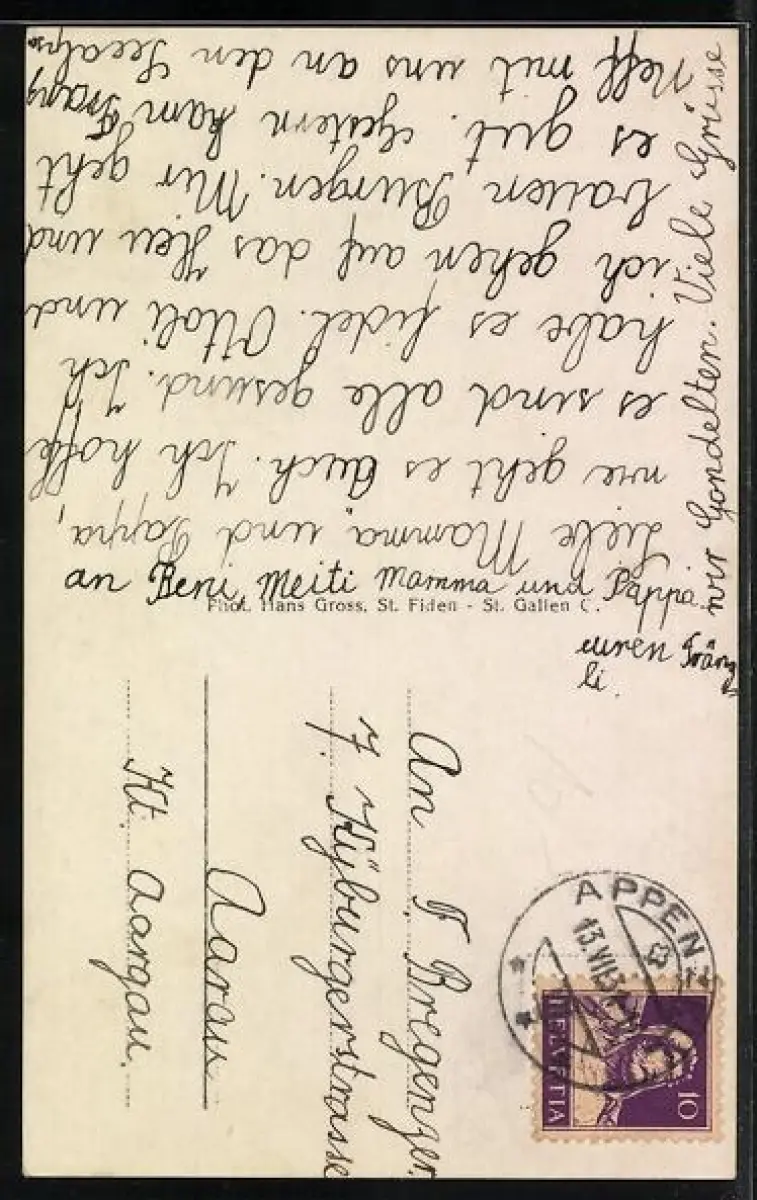 Liebe Mamma, und Pappa,
wie geht es Euch. Ich hoffe
es sind alle gesund. Ich
habe es fidel. Ottoli und
ich gehen auf das Heu und
bauen Burgen. Mir geht
es gut. Gestern kam Franz
Neff mit uns an den Seealpse
wir Gondelten. Viele Grüsse
an Beni, Meiti Mamma und Pappa.
euren Fränz
li.
Phot. Hans Gross, St. Fiden - St. Gallen C.
An F. Bregenzer.
7. Kÿburgerstrasse
Aarau
Kt. Aargau.
APPEN
13.VII.3
HELVETIA
10